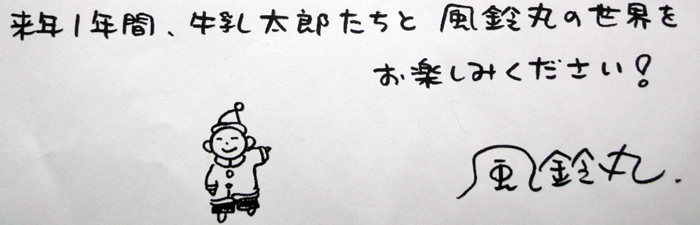 来年1年間、牛乳太郎たちと 風鈴丸の世界を
お楽しみください!
風鈴丸.